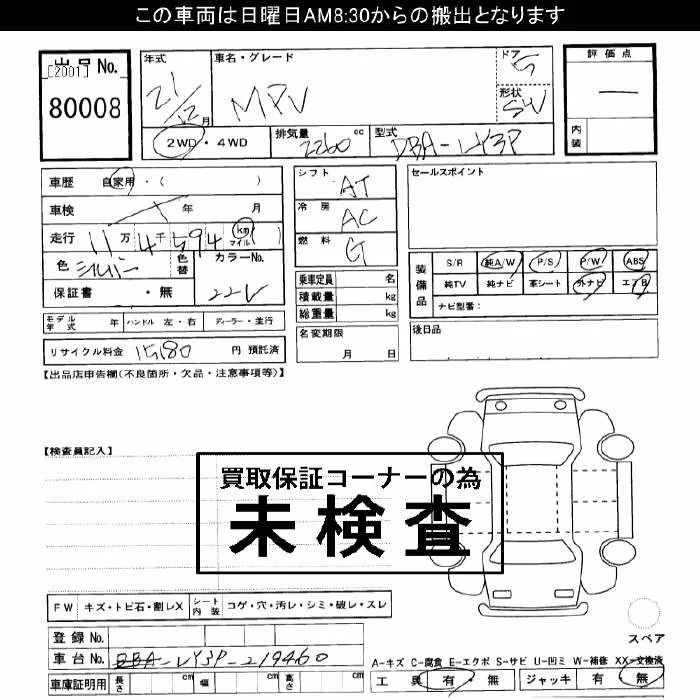 この車両は日曜日AM8:30からの搬出となります
出品No.
[2001]
80008
年式
21/12月
車名・グレード
MPV
ドア
5
形状
SW
2WD・4WD
排気量 2260 cc
型式 DBA-LY3P
評価点
—
内装
車歴 自家用・( )
車検 年 月
走行 11万4千594 km マイル
色 シルバー
色替
カラーNo.
22V
保証書 ・無
シフト AT
冷房 AC
燃料 G
乗車定員 名
積載量 kg
総重量 kg
セールスポイント
装備品
S/R 純A/W P/S P/W ABS
純TV 純ナビ 革シート 外ナビ エアB
ナビ型番:
モデル年式 年 ハンドル 左・右 ディーラー・並行
名変期限
月 日
後日品
リサイクル料金 15180 円 預託済
【出品店申告欄(不良箇所・欠品・注意事項等)】
【検査員記入】
買取保証コーナーの為
未検査
FW キズ・トビ石・割レX シート内装 コゲ・穴・汚レ・シミ・破レ・スレ
スペア
登録No.
車台No. DBA-LY3P-219460
A-キズ C-腐食 E-エクボ S-サビ U-凹ミ W-補修 XX-交換済
車庫証明用 長さ cm 幅 cm 高さ cm
工具 有・無 ジャッキ 有・無